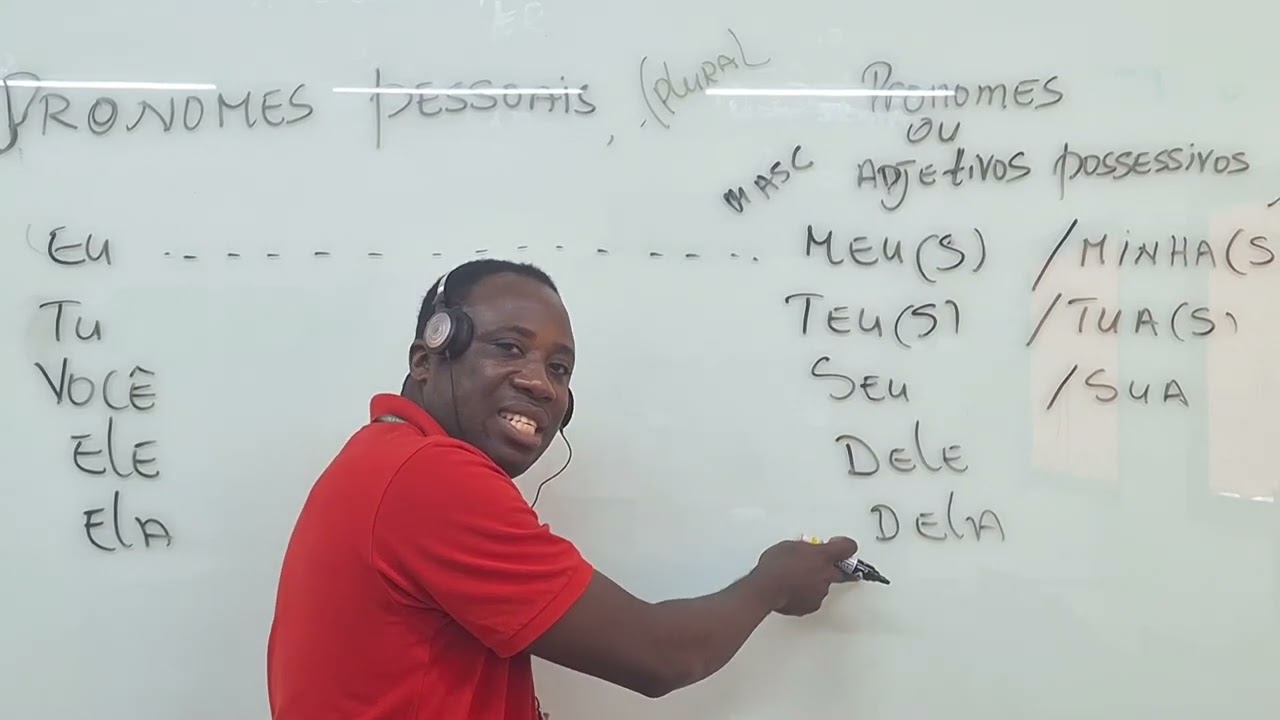 PRONOMES PESSOAIS, (PLURAL
PRONOMES
OU
MASC ADJETIVOS POSSESSIVOS
EU - - - - - - - - - - MEU(S) / MINHA(S
TU TEU(S) / TUA(S)
VOCÊ SEU / SUA
ELE DELE
ELA DELA